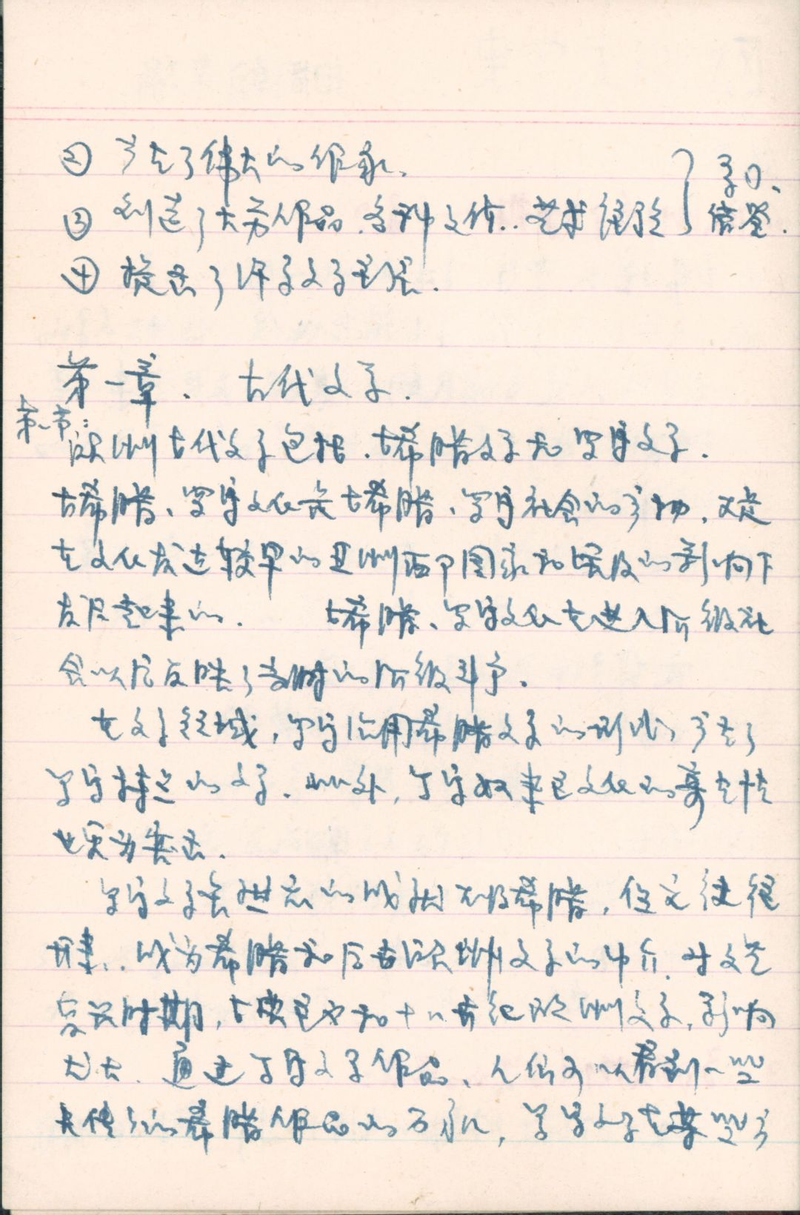 ② 产生了伟大的作家、
③ 创造了大为作品、各种文体、艺术经验 } 学习、借鉴.
④ 提出了许多文学主张.
第一章. 古代文学.
第一节:
欧洲古代文学包括、古希腊文学和罗马文学.
古希腊、罗马文化是古希腊、罗马社会的产物、又是
在文化发达较早的亚洲西部国家和民族的影响下
发展起来的. 古希腊、罗马文化在进入阶级社
会以后反映了当时的阶级斗争.
在文学领域,罗马沿用希腊文学的形式,产生了
罗马特点的文学. 此外,罗马奴隶主文化的寄生性
也更为突出.
罗马文学的成就不及希腊,但它继往
开来、成为希腊和后古欧洲文学的中介、对文艺
复兴时期,古典主义和十八世纪欧洲文学,影响
尤大、通过罗马文学作品、人们可以看到一些
失传了的希腊作品的面貌,罗马文学在某些方